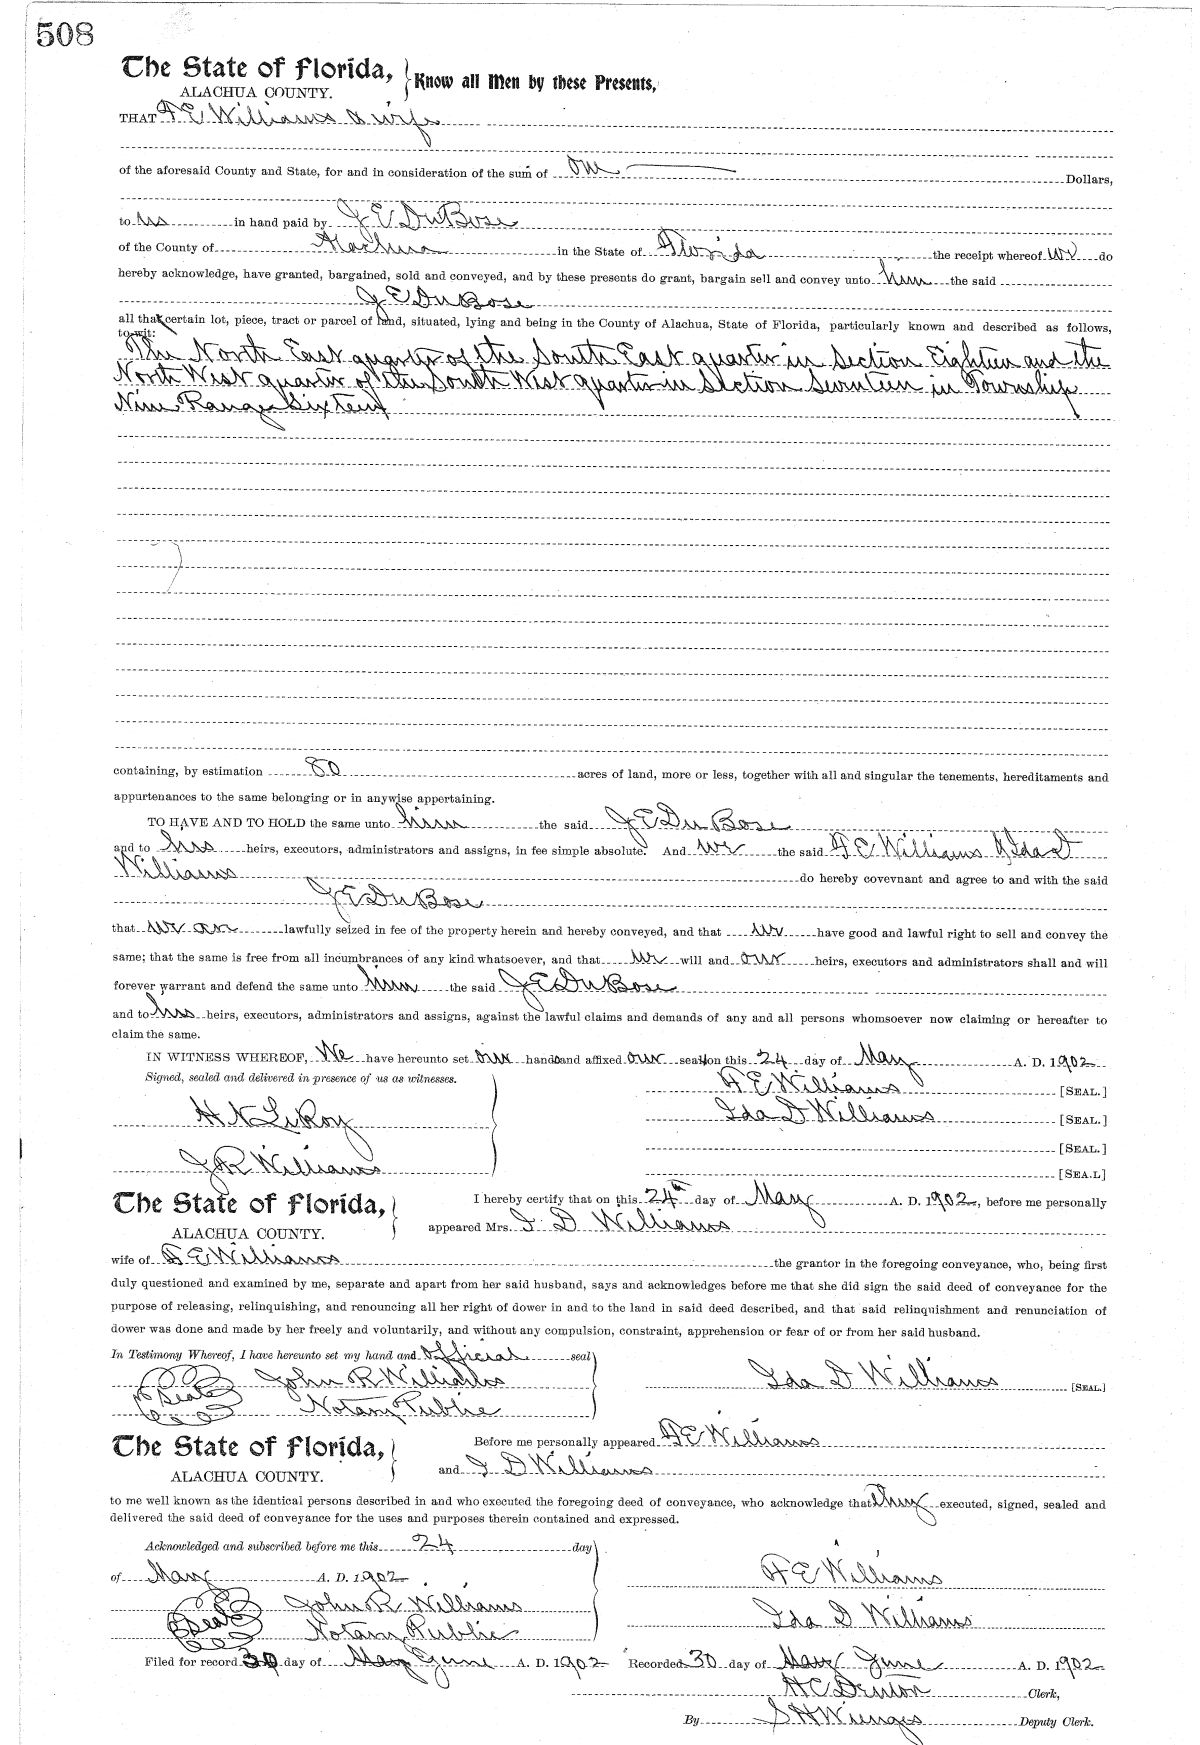 508
The State of Florida, Know all Men by these Presents,
ALACHUA COUNTY.
THAT F E Williams & wife
of the aforesaid County and State, for and in consideration of the sum of one Dollars,
to us in hand paid by J E DuBose
of the County of Alachua in the State of Florida the receipt whereof we do
hereby acknowledge, have granted, bargained, sold and conveyed, and by these presents do grant, bargain sell and convey unto him the said
J E DuBose
all that certain lot, piece, tract or parcel of land, situated, lying and being in the County of Alachua, State of Florida, particularly known and described as follows,
to-wit:
The North East quarter of the South East quarter in Section Eighteen and the
North West quarter of the South West quarter in Section Seventeen in Township
Nine Range Sixteen
containing, by estimation 80 acres of land, more or less, together with all and singular the tenements, hereditaments and
appurtenances to the same belonging or in anywise appertaining.
TO HAVE AND TO HOLD the same unto him the said J E Du Bose
and to his heirs, executors, administrators and assigns, in fee simple absolute. And we the said F E Williams & Ida D
Williams do hereby covevnant and agree to and with the said
J E DuBose
that we are lawfully seized in fee of the property herein and hereby conveyed, and that we have good and lawful right to sell and convey the
same; that the same is free from all incumbrances of any kind whatsoever, and that we will and our heirs, executors and administrators shall and will
forever warrant and defend the same unto him the said J E DuBose
and to his heirs, executors, administrators and assigns, against the lawful claims and demands of any and all persons whomsoever now claiming or hereafter to
claim the same.
IN WITNESS WHEREOF, We have hereunto set our hands and affixed our seals on this 24 day of May A. D. 1902
Signed, sealed and delivered in presence of us as witnesses.
F E Williams [SEAL.]
H N LeRoy
Ida D Williams [SEAL.]
[SEAL.]
J R Williams
[SEA.L]
The State of Florida, I hereby certify that on this 24th day of May A. D. 1902, before me personally
ALACHUA COUNTY. appeared Mrs. I D Williams
wife of F E Williams the grantor in the foregoing conveyance, who, being first
duly questioned and examined by me, separate and apart from her said husband, says and acknowledges before me that she did sign the said deed of conveyance for the
purpose of releasing, relinquishing, and renouncing all her right of dower in and to the land in said deed described, and that said relinquishment and renunciation of
dower was done and made by her freely and voluntarily, and without any compulsion, constraint, apprehension or fear of or from her said husband.
In Testimony Whereof, I have hereunto set my hand and official seal
John R Williams Ida D Williams [SEAL.]
Seal Notary Public
The State of Florida, Before me personally appeared F E Williams
ALACHUA COUNTY. and I D Williams
to me well known as the identical persons described in and who executed the foregoing deed of conveyance, who acknowledge that they executed, signed, sealed and
delivered the said deed of conveyance for the uses and purposes therein contained and expressed.
Acknowledged and subscribed before me this 24 day
of May A. D. 1902 F E Williams
John R Williams
Seal Ida D Williams
Notary Public
Filed for record 30 day of May June A. D. 1902 Recorded 30 day of May June A. D. 1902
H C Denton Clerk,
By S H Wienges Deputy Clerk.